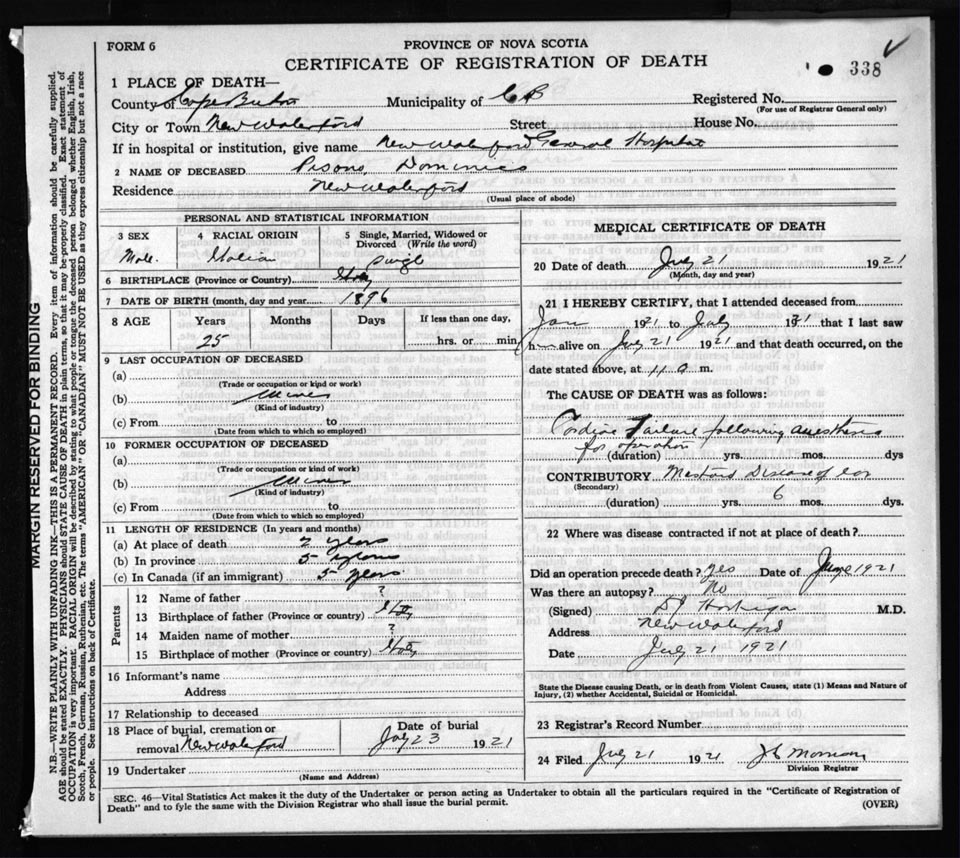 FORM 6
PROVINCE OF NOVA SCOTIA
CERTIFICATE OF REGISTRATION OF DEATH
338
1 PLACE OF DEATH—
County of Cape Breton Municipality of C B Registered No.
(For use of Registrar General only)
City or Town New Waterford Street House No.
If in hospital or institution, give name New Waterford General Hospital
2 NAME OF DECEASED Pisano, Dominic
Residence New Waterford
(Usual place of abode)
PERSONAL AND STATISTICAL INFORMATION
3 SEX 4 RACIAL ORIGIN 5 Single, Married, Widowed or Divorced (Write the word)
Male. Italian Single
6 BIRTHPLACE (Province or Country) Italy
7 DATE OF BIRTH (month, day and year) 1896
8 AGE Years Months Days If less than one day,
25 hrs. or min.
9 LAST OCCUPATION OF DECEASED
(a)
(Trade or occupation or kind or work)
(b) Miner
(Kind of industry)
(c) From to
(Date from which to which so employed)
10 FORMER OCCUPATION OF DECEASED
(a)
(Trade or occupation or kind of work)
(b) Miner
(Kind of industry)
(c) From to
(Date from which to which so employed)
11 LENGTH OF RESIDENCE (In years and months)
(a) At place of death 2 years
(b) In province 5 years
(c) In Canada (if an immigrant) 5 years
Parents
12 Name of father ?
13 Birthplace of father (Province or country) Italy
14 Maiden name of mother ?
15 Birthplace of mother (Province or country) Italy
16 Informant's name
Address
17 Relationship to deceased
18 Place of burial, cremation or removal New Waterford Date of burial July 23 1921
19 Undertaker
(Name and Address)
MEDICAL CERTIFICATE OF DEATH
20 Date of death July 21 1921
(Month, day and year)
21 I HEREBY CERTIFY, that I attended deceased from
Jan 1921 to July 1921 that I last saw
h alive on July 21 1921 and that death occurred, on the
date stated above, at 11 a m.
The CAUSE OF DEATH was as follows:
Cardiac Failure following anesthesia
for operation
(duration) yrs. mos. dys
CONTRIBUTORY Mastoid Disease of ear
(Secondary)
(duration) yrs. 6 mos. dys.
22 Where was disease contracted if not at place of death?
Did an operation precede death? Yes Date of June 1921
Was there an autopsy? No
(Signed) M.D.
Address New Waterford
Date July 21 1921
State the Disease causing Death, or in death from Violent Causes, state (1) Means and Nature of
Injury, (2) whether Accidental, Suicidal or Homicidal.
23 Registrar's Record Number
24 Filed July 21 1921 Morrison
Division Registrar
SEC. 46—Vital Statistics Act makes it the duty of the Undertaker or person acting as Undertaker to obtain all the particulars required in the "Certificate of Registration of
Death" and to fyle the same with the Division Registrar who shall issue the burial permit.
(OVER)
MARGIN RESERVED FOR BINDING
N.B.—WRITE PLAINLY WITH UNFADING INK—THIS IS A PERMANENT RECORD. Every item of information should be carefully supplied.
AGE should be stated EXACTLY. PHYSICIANS should STATE CAUSE OF DEATH in plain terms, so that it may be properly classified. Exact statement of
OCCUPATION is very important. RACIAL ORIGIN will be described by stating to what people or tongue the deceased person belonged whether English, Irish,
Scotch, French, German, Russian, Ruthenian, etc. The terms "AMERICAN" OR "CANADIAN" MUST NOT BE USED as they express citizenship but not a race
or people. See instructions on back of Certificate.